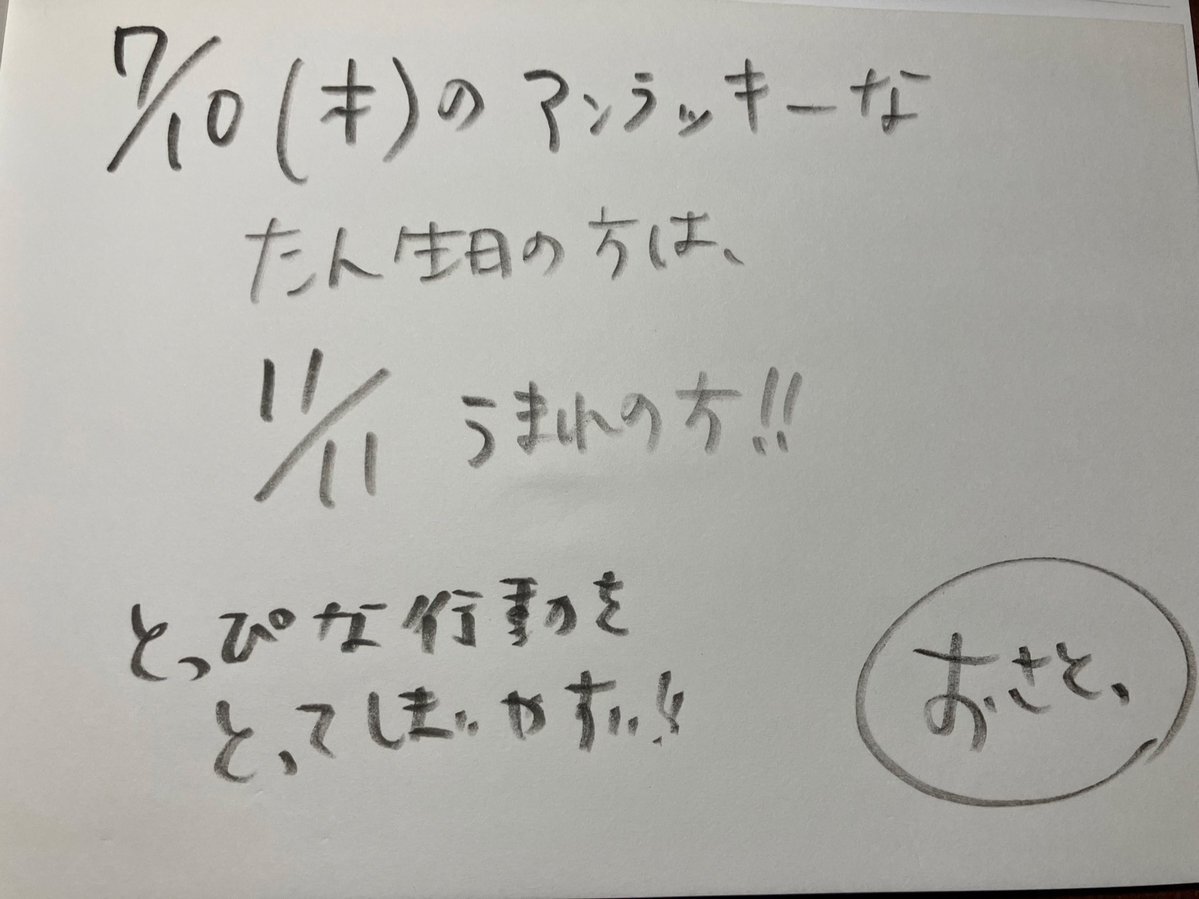 7/10(木)の アンラッキーな
たん生日の方は、
11/11 うまれの方!!
とっぴな行動を
とってしまいやすい!!
おさと、